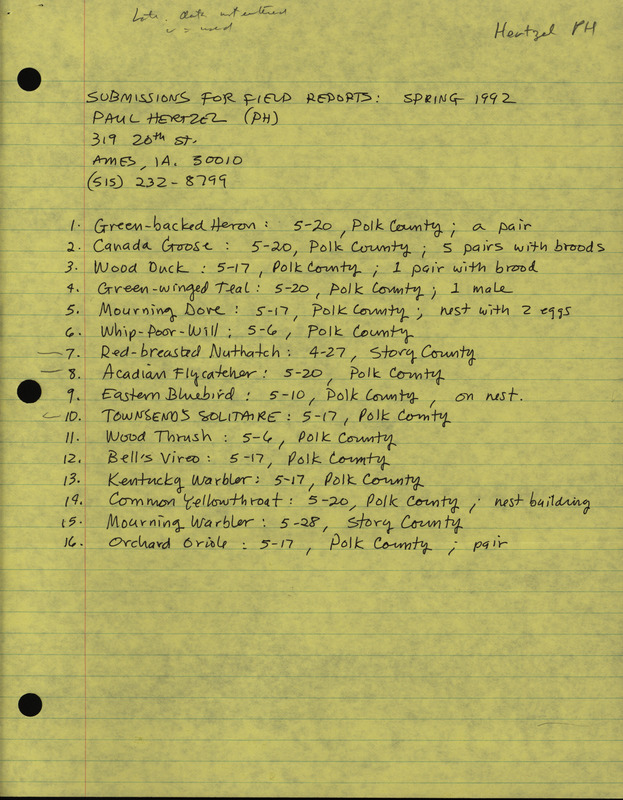 Late, data not entered
✓ = used
Hertzel PH
SUBMISSIONS FOR FIELD REPORTS: SPRING 1992
PAUL HERTZEL (PH)
319 20th St.
AMES, IA. 50010
(515) 232-8799
1. Green-backed Heron: 5-20, Polk County; a pair
2. Canada Goose: 5-20, Polk County; 5 pairs with broods
3. Wood Duck: 5-17, Polk County; 1 pair with brood
4. Green-winged Teal: 5-20, Polk County; 1 male
5. Mourning Dove: 5-17, Polk County; nest with 2 eggs
6. Whip-Poor-Will; 5-6, Polk County
7. Red-breasted Nuthatch: 4-27, Story County
8. Acadian Flycatcher: 5-20, Polk County
9. Eastern Bluebird: 5-10, Polk County, on nest.
10. TOWNSENDS SOLITAIRE: 5-17, Polk County
11. Wood Thrush: 5-6, Polk County
12. Bell's Vireo: 5-17, Polk County
13. Kentucky Warbler: 5-17, Polk County
14. Common Yellowthroat: 5-20, Polk County; nest building
15. Mourning Warbler: 5-28, Story County
16. Orchard Oriole: 5-17, Polk County; pair